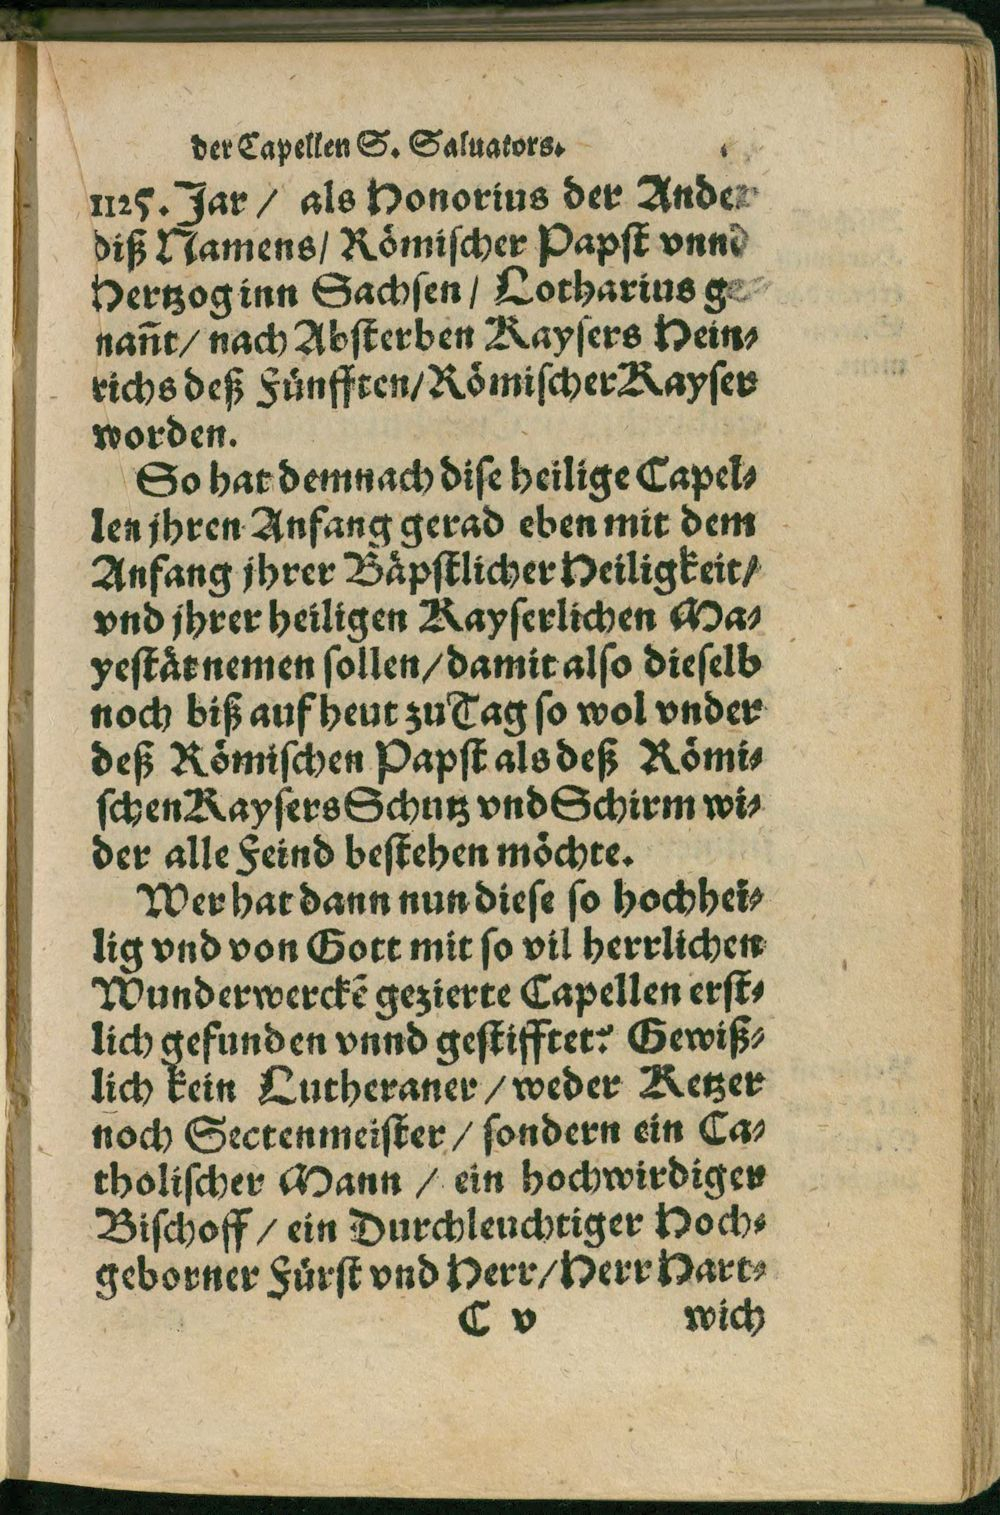 der Capellen S. Saluators.
1125. Jar / als Honorius der Ander
diß Namens/ Römischer Papst vnnd
Hertzog inn Sachsen / Lotharius ge-
nañt/ nach Absterben Kaysers Hein-
richs deß Fünfften/ Römischer Kayser
worden.
So hat demnach dise heilige Capel-
len jhren Anfang gerad eben mit dem
Anfang jhrer Bäpstlicher Heiligkeit/
vnd jhrer heiligen Kayserlichen Ma-
yestät nemen sollen/ damit also dieselb
noch biß auf heut zu Tag so wol vnder
deß Römischen Papst als deß Römi-
schen Kaysers Schutz vnd Schirm wi-
der alle Feind bestehen möchte.
Wer hat dann nun diese so hochhei-
lig vnd von Gott mit so vil herrlichen
Wunderwerckē gezierte Capellen erst-
lich gefunden vnnd gestifftet? Gewiß-
lich kein Lutheraner / weder Ketzer
noch Sectenmeister / sondern ein Ca-
tholischer Mann / ein hochwirdiger
Bischoff / ein Durchleuchtiger Hoch-
geborner Fürst vnd Herr/ Herr Hart-
C v wich